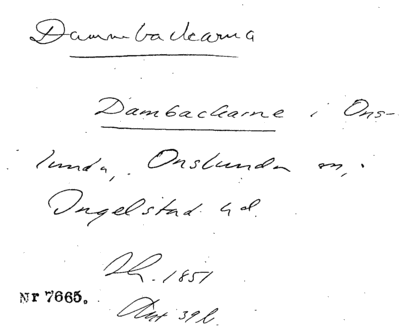 Dammbackarna
Dambackarne i Ons-
lunda, Onslunda sn,
Ingelstad hd.
Sk. 1851
Nr 7665.